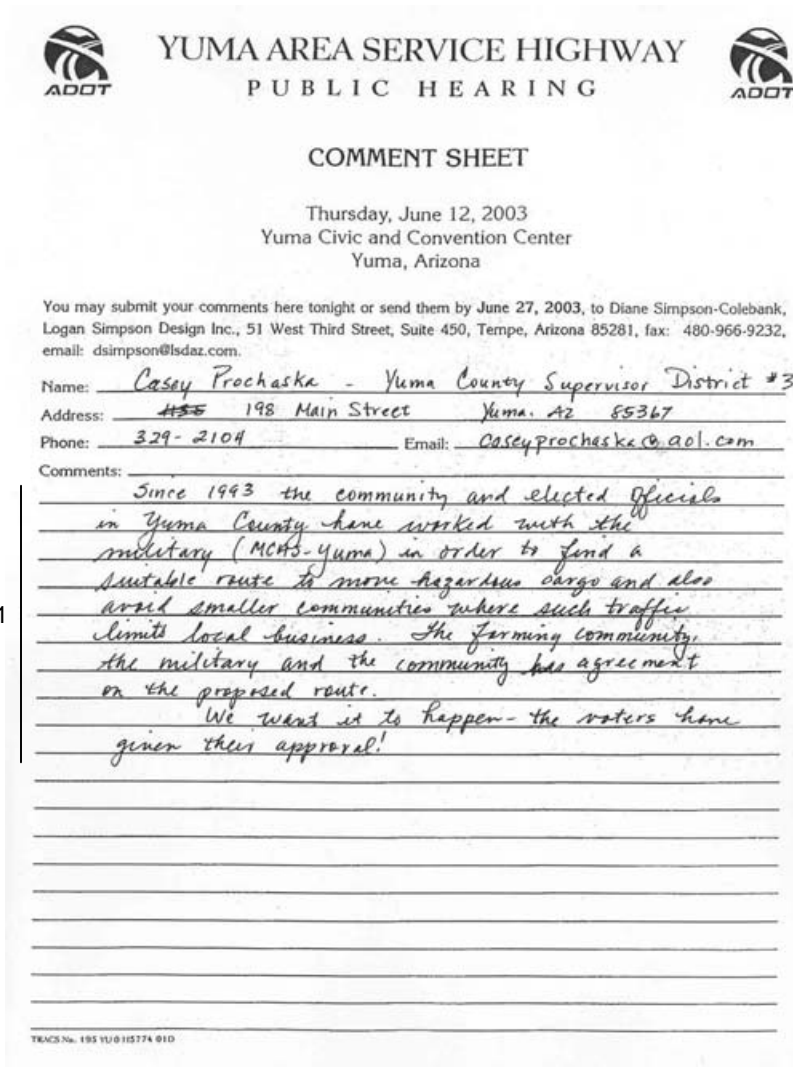 YUMA AREA SERVICE HIGHWAY
PUBLIC HEARING
ADOT
ADOT
COMMENT SHEET
Thursday, June 12, 2003
Yuma Civic and Convention Center
Yuma, Arizona
You may submit your comments here tonight or send them by June 27, 2003, to Diane Simpson-Colebank,
Logan Simpson Design Inc., 51 West Third Street, Suite 450, Tempe, Arizona 85281, fax: 480-966-9232,
email: dsimpson@lsdaz.com.
Name: Casey Prochaska - Yuma County Supervisor District #3
Address: 198 Main Street Yuma. AZ 85367
Phone: 329-2104 Email: caseyprochaska@aol.com
Comments:
Since 1993 the community and elected officials
in Yuma County have worked with the
military (MCAS-Yuma) in order to find a
suitable route to move hazardous cargo and also
avoid smaller communities where such traffic
1
limits local business. The farming community,
the military and the community has agreement
on the proposed route.
We want it to happen - the voters have
given their approval!
TRACS No. 195 YU 0 H5774 01D